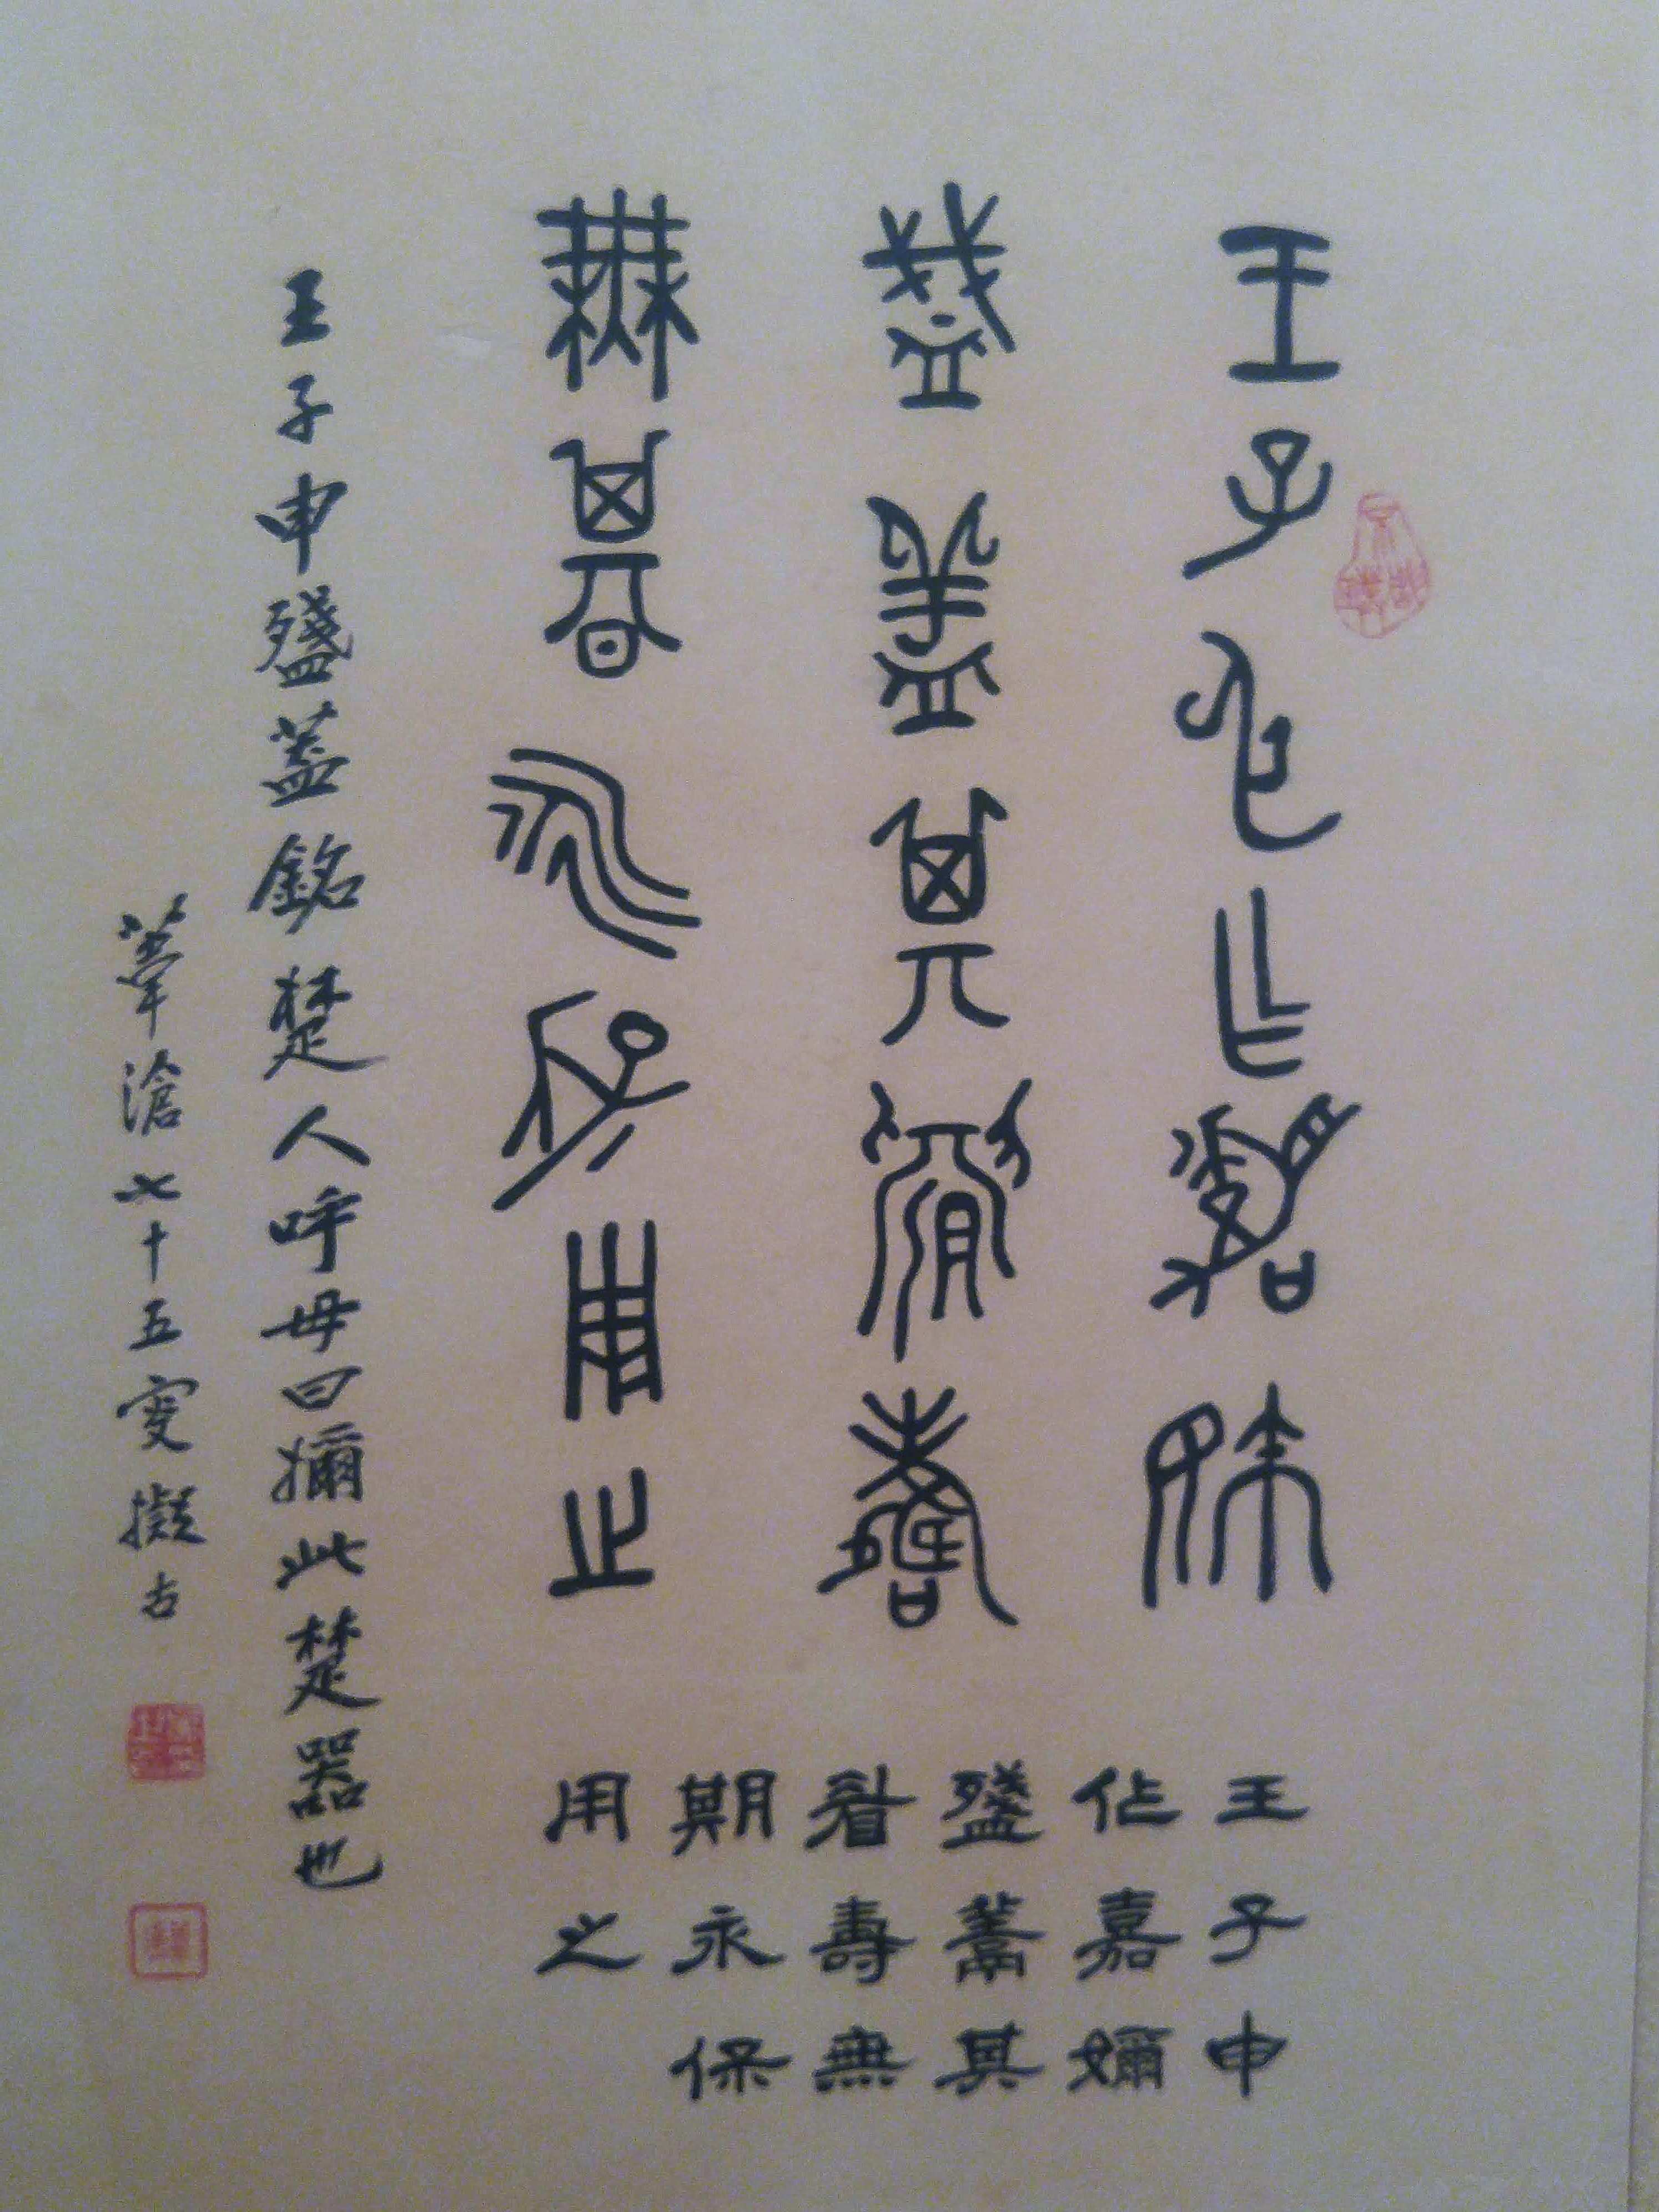 王子申作嘉嬭
盞蓋其眉壽
無期永保用之
王子申
作嘉嬭
盞蓋其
眉壽無
期永保
用之
王子申盞蓋銘楚人呼母曰嬭此楚器也
滄七十五叟擬古